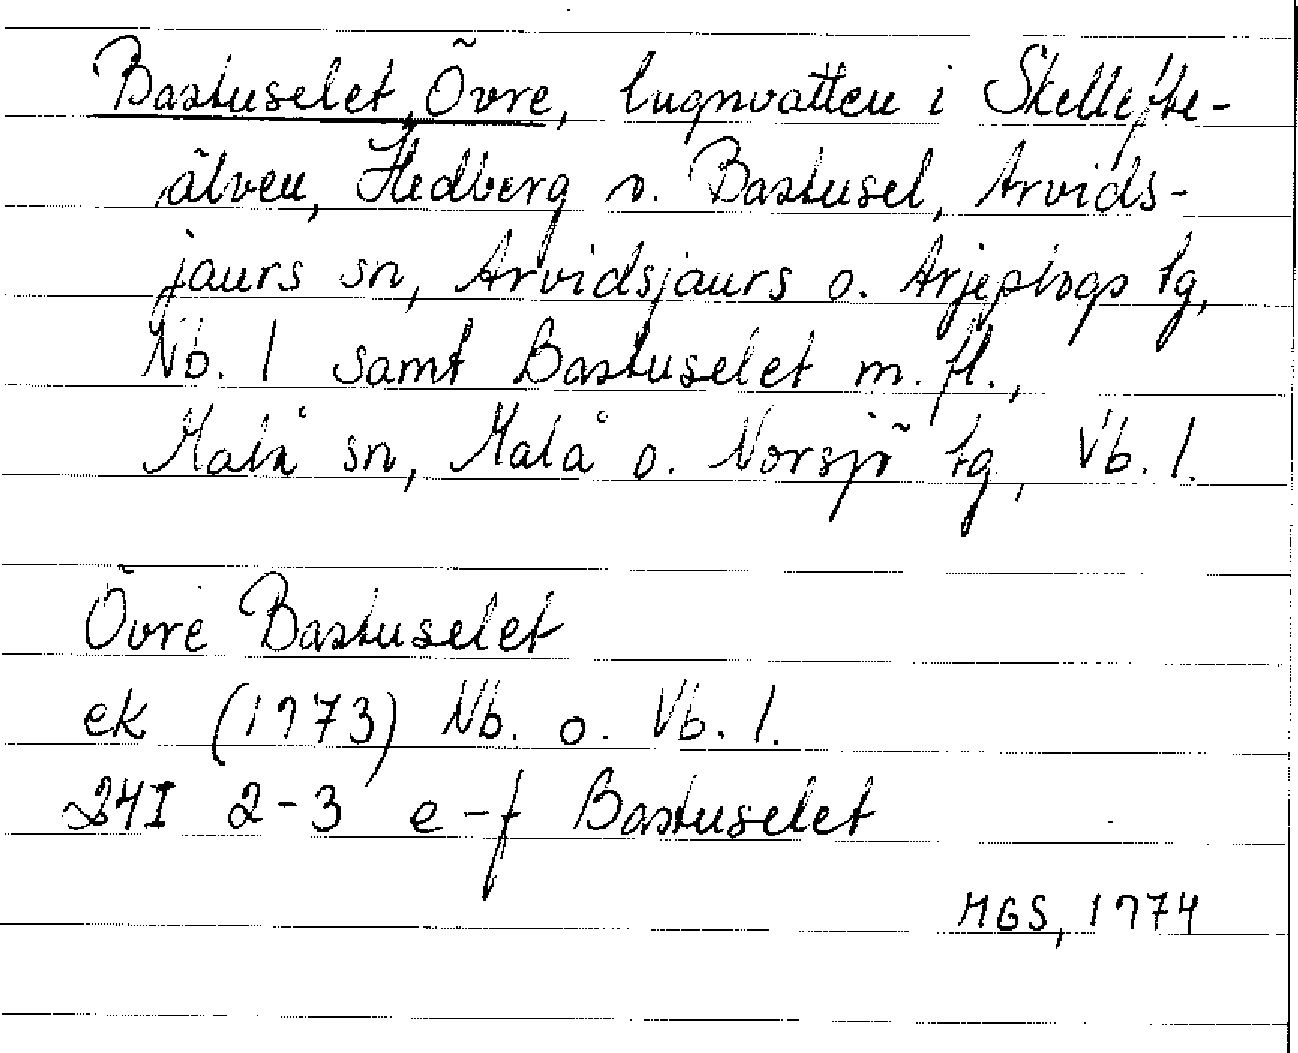 Bastuselet, Övre, lugnvatten i Skellefte-
älven, Hedberg o. Bastusel, Arvids-
jaurs sn, Arvidsjaurs o. Arjeplogs tg,
Nb. l samt Bastuselet m. fl.,
Malå sn, Malå o. Norsjö tg, Vb. l.
Övre Bastuselet
ek (1973) Nb. o. Vb. l.
24I 2-3 e-f Bastuselet
MGS, 1974